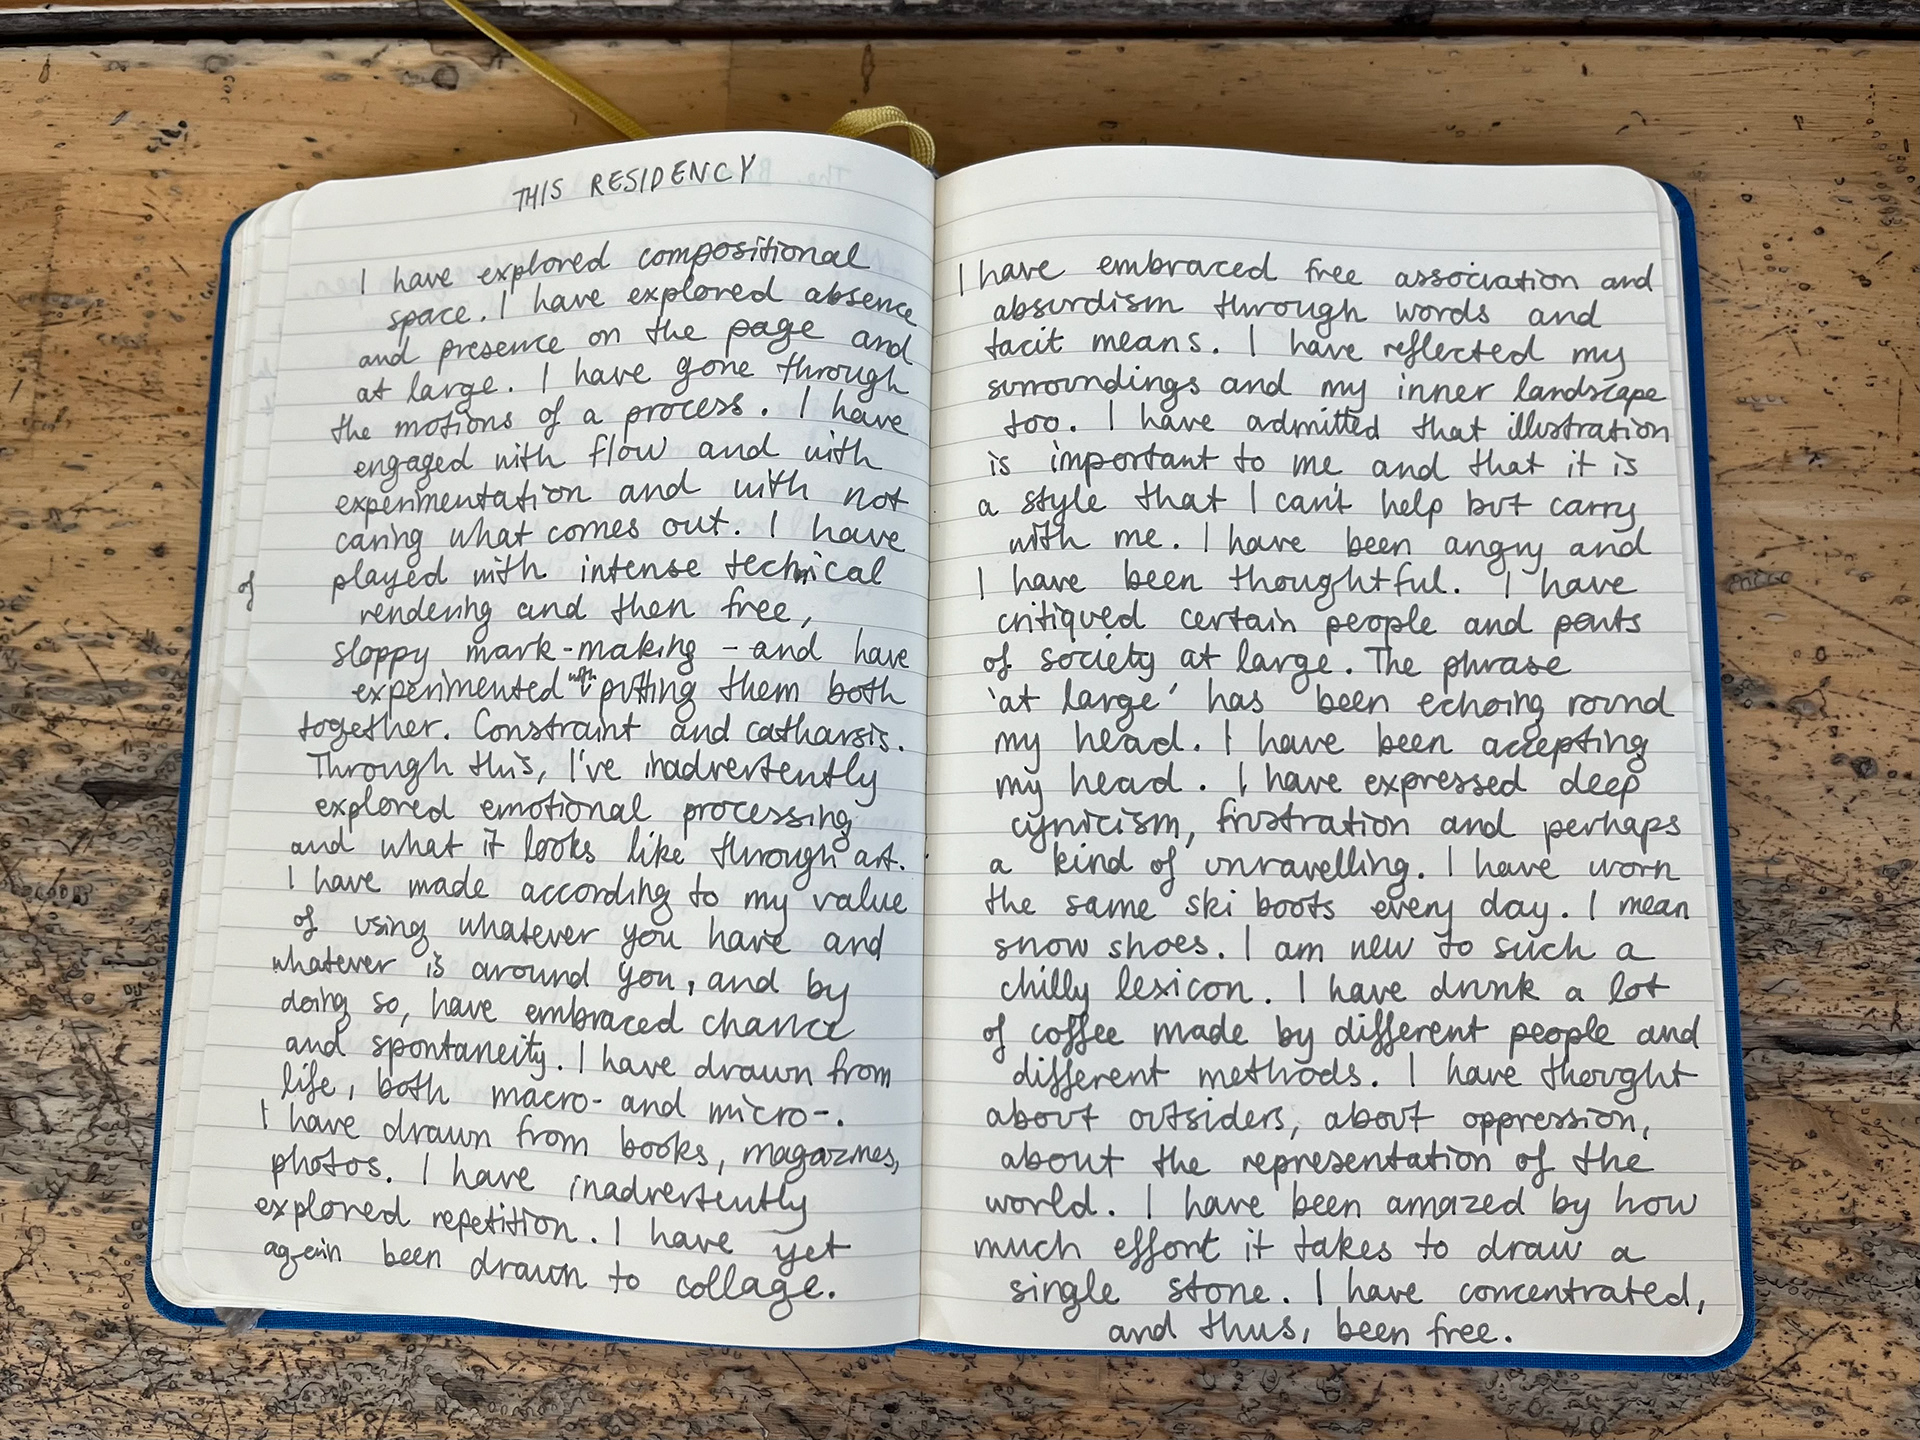 THIS RESIDENCY
I have explored compositional
space. I have explored absence
and presence on the page and
at large. I have gone through
the motions of a process. I have
engaged with flow and with
experimentation and with not
caring what comes out. I have
played with intense technical
of
rendering and then free,
sloppy mark-making - and have
experimented with putting them both
together. Constraint and catharsis.
Through this, I've inadvertently
explored emotional processing
and what it looks like through art.
I have made according to my value
of using whatever you have and
whatever is around you, and by
doing so, have embraced chance
and spontaneity. I have drawn from
life, both macro- and micro-.
I have drawn from books, magazines,
photos. I have inadvertently
explored repetition. I have yet
again been drawn to collage.
I have embraced free association and
absurdism through words and
tacit means. I have reflected my
surroundings and my inner landscape
too. I have admitted that illustration
is important to me and that it is
a style that I can't help but carry
with me. I have been angry and
I have been thoughtful. I have
critiqued certain people and parts
of society at large. The phrase
'at large' has been echoing round
my head. I have been accepting
my head. I have expressed deep
cynicism, frustration and perhaps
a kind of unravelling. I have worn
the same ski boots every day. I mean
snow shoes. I am new to such a
chilly lexicon. I have drunk a lot
of coffee made by different people and
different methods. I have thought
about outsiders, about oppression,
about the representation of the
world. I have been amazed by how
much effort it takes to draw a
single stone. I have concentrated,
and thus, been free.